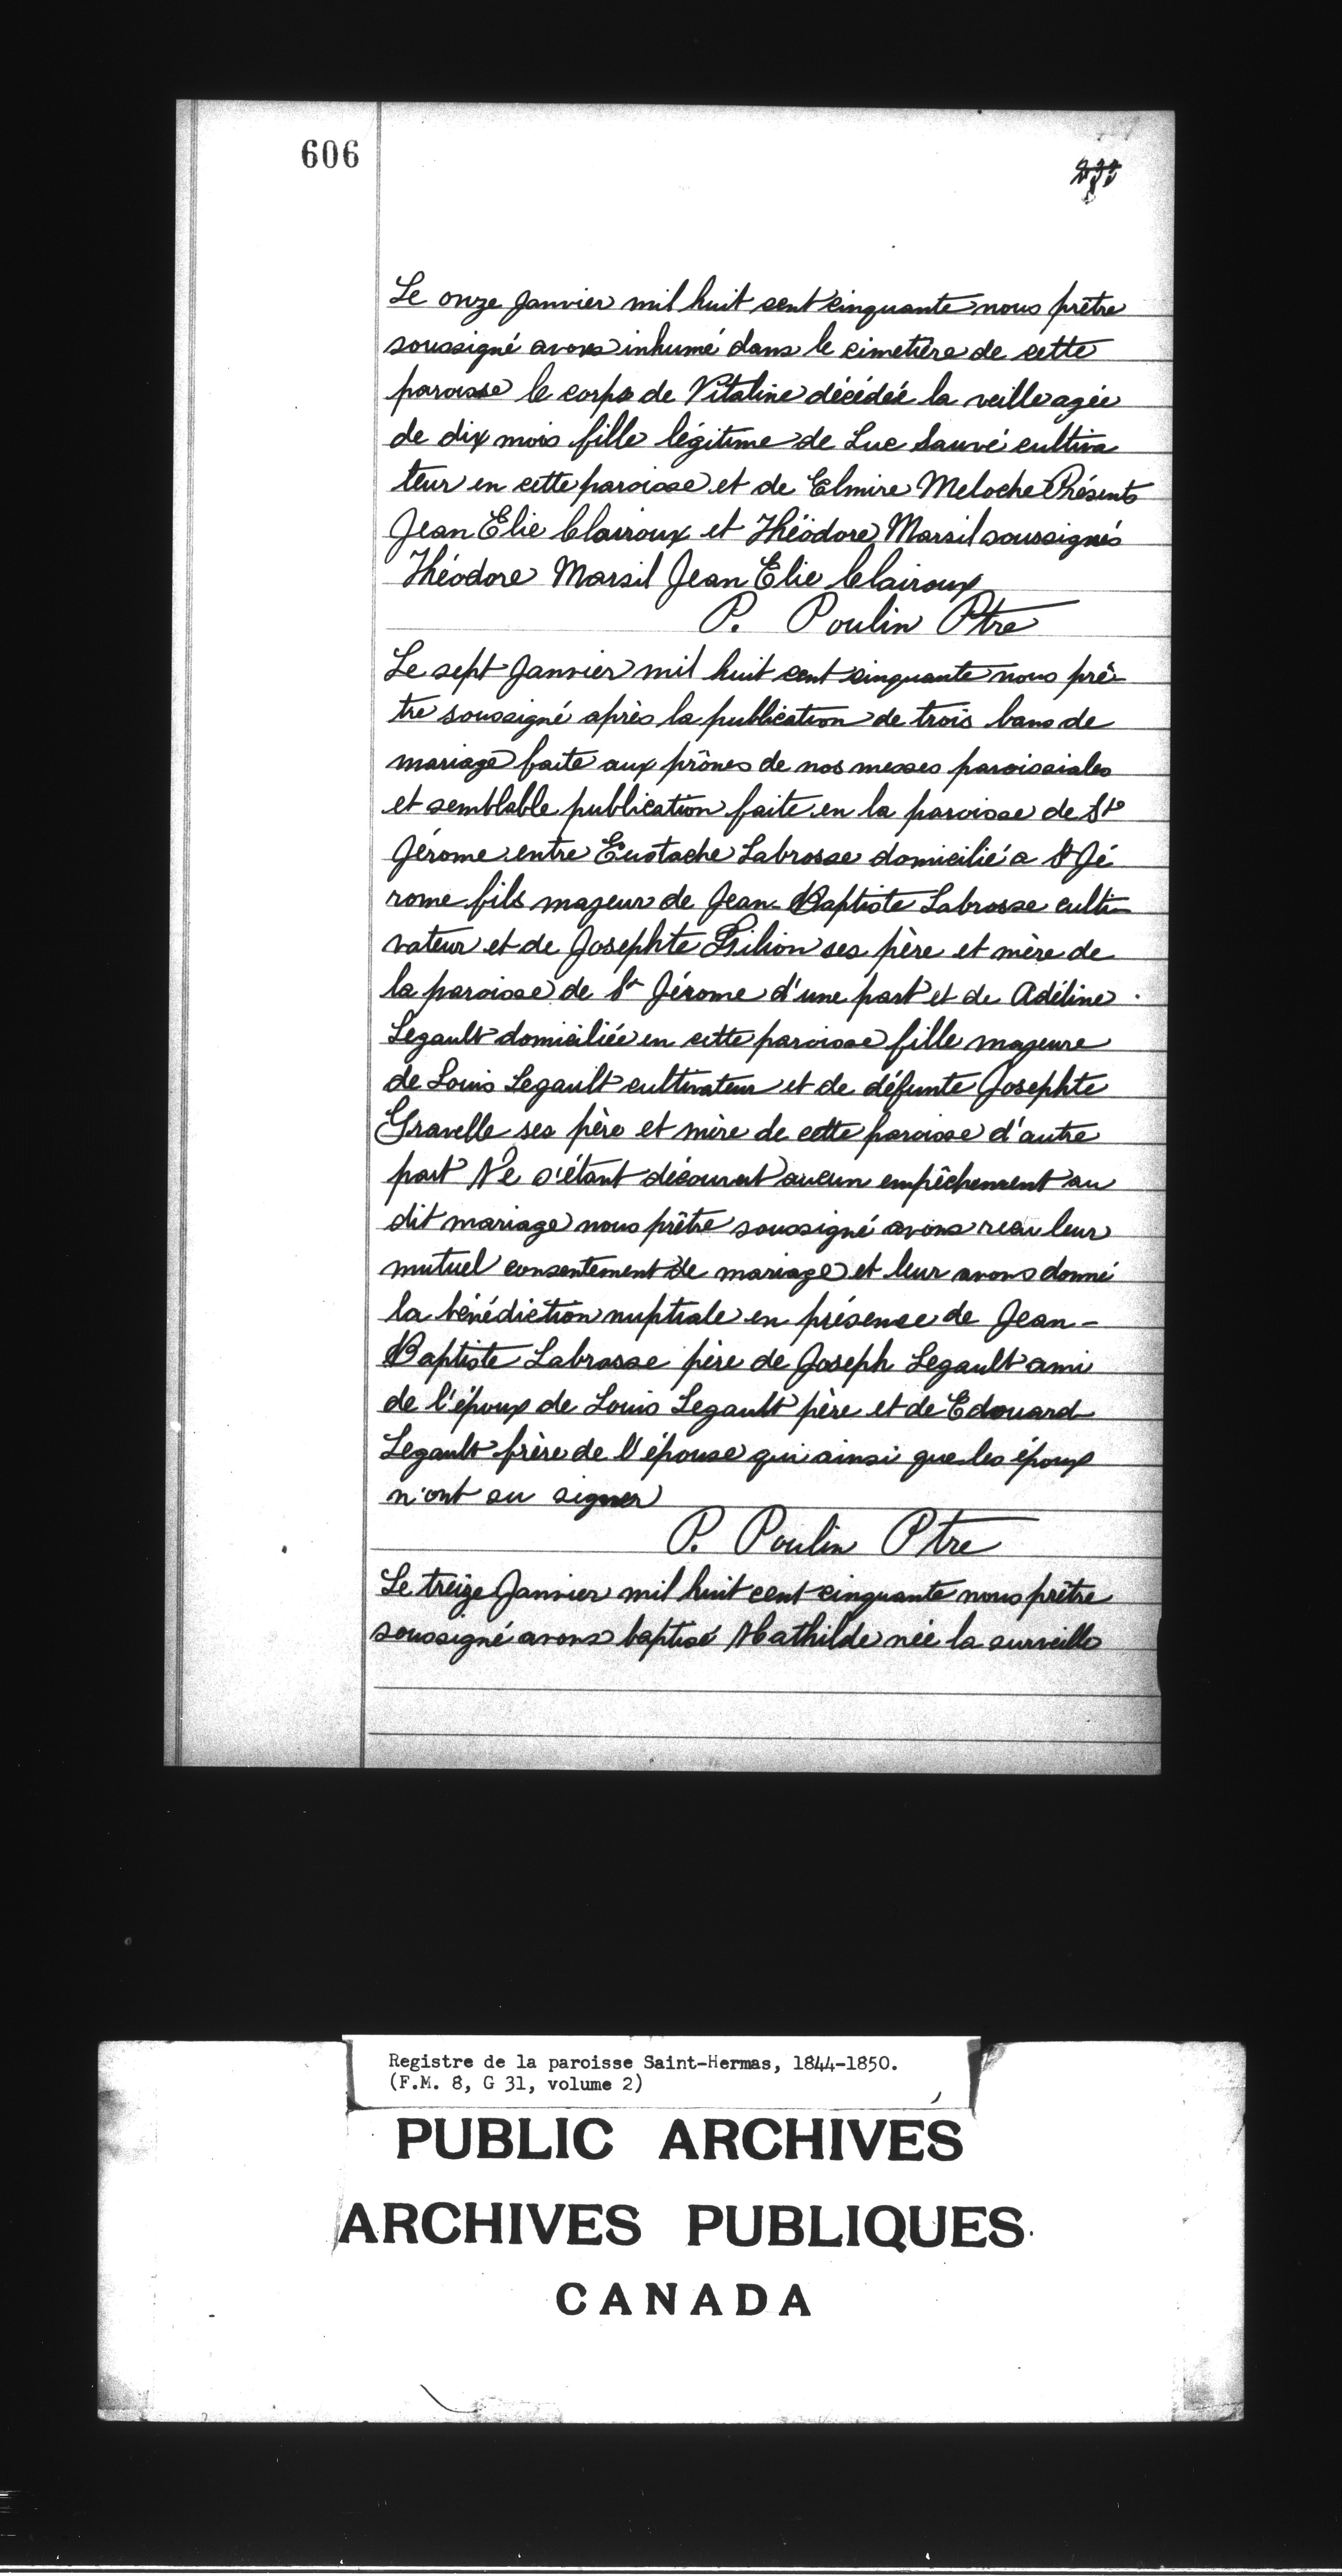 606
Le onze Janvier mil huit cent cinquante nous prêtre
soussigné avons inhumé dans le cimetière de cette
paroisse le corps de Vitaline décédée la veille agée
de dix mois fille légitime de Luc Sauvé cultiva
teur en cette paroisse et de Elmire Meloche Présents
Jean Elie Clairoux et Théodore Marsil soussignés
Théodore Marsil Jean Elie Clairoux
P. Poulin Ptre
Le sept Janvier mil huit cent cinquante nous prê-
tre soussigné après la publication de trois bans de
mariage faite aux prônes de nos messes paroissiales
et semblable publication faite en la paroisse de St
Jérome entre Eustache Labrosse domicilié a St Jé
rome fils majeur de Jean-Baptiste Labrosse culti-
vateur et de Josephte Filion ses père et mère de
la paroisse de St Jérome d'une part et de Adéline
Legault domiciliée en cette paroisse fille majeure
de Louis Legault cultivateur et de défunte Josephte
Gravelle ses père et mère de cette paroisse d'autre
part Ne s'étant découvert aucun empêchement au
dit mariage nous prêtre soussigné avons recu leur
mutuel consentement de mariage et leur avons donné
la bénédiction nuptiale en présence de Jean-
Baptiste Labrosse père de Joseph Legault ami
de l'époux de Louis Legault père et de Edouard
Legault frère de l'épouse qui ainsi que les époux
n'ont su signer
P. Poulin Ptre
Le treize Janvier mil huit cent cinquante nous prêtre
soussigné avons baptisé Mathilde née la surveille
Registre de la paroisse Saint-Hermas, 1844-1850.
(F.M. 8, G 31, volume 2)
PUBLIC ARCHIVES
ARCHIVES PUBLIQUES
CANADA